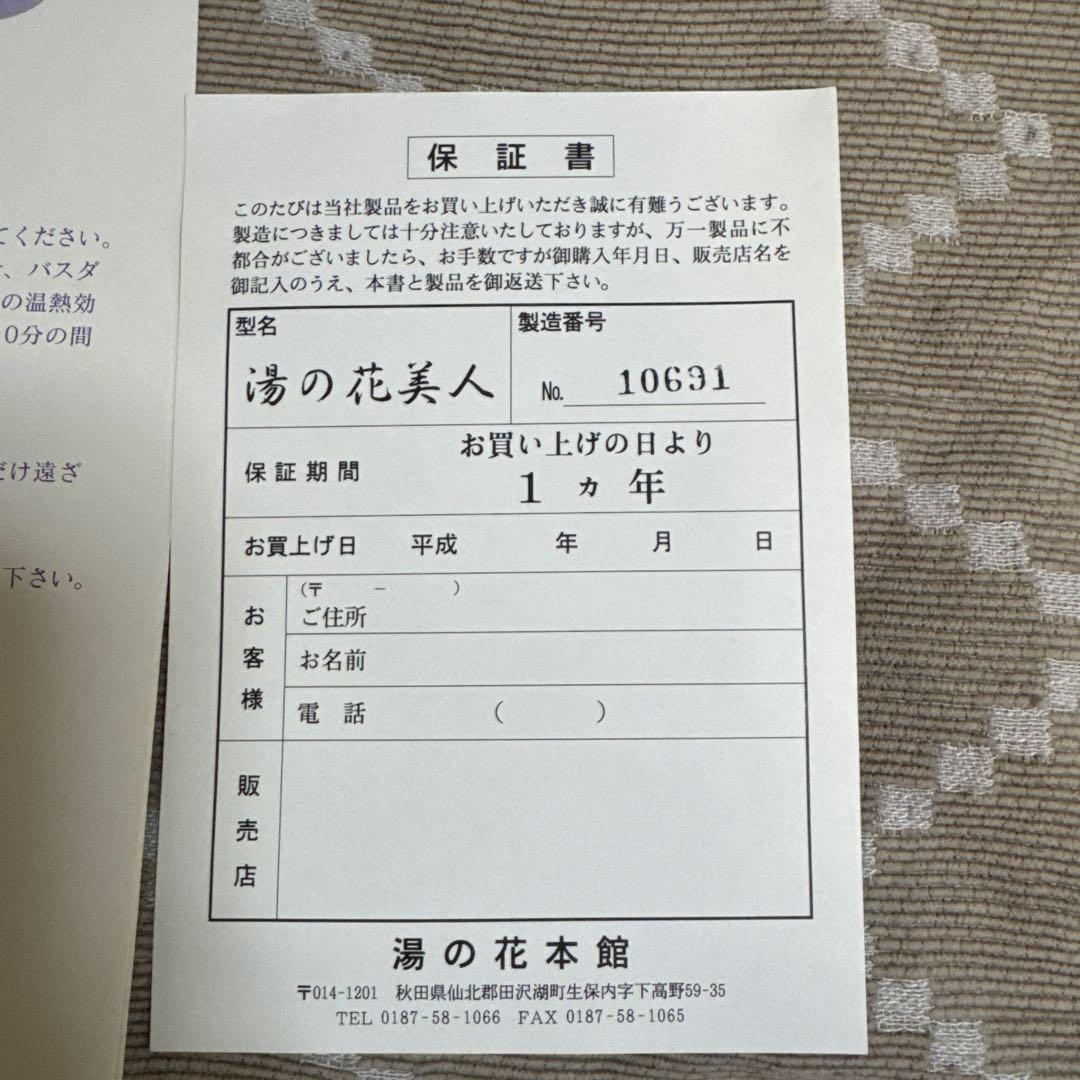 てください。
、バスダ
の温熱効
0分の間
だけ遠ざ
下さい。
保証書
このたびは当社製品をお買い上げいただき誠に有難うございます。
製造につきましては十分注意いたしておりますが、万一製品に不
都合がございましたら、お手数ですが御購入年月日、販売店名を
御記入のうえ、本書と製品を御返送下さい。
型名
湯の花美人
製造番号
No. 10691
保証期間
お買い上げの日より
1ヵ年
お買上げ日 平成 年 月 日
お客様
(〒 - )
ご住所
お名前
電話 ( )
販売店
湯の花本館
〒014-1201 秋田県仙北郡田沢湖町生保内字下高野59-35
TEL 0187-58-1066 FAX 0187-58-1065